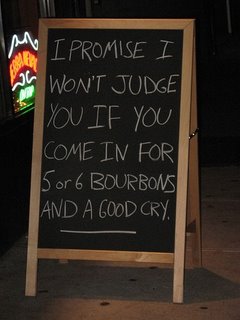 I PROMISE I
WON'T JUDGE
YOU IF YOU
COME IN FOR
5 or 6 BOURBONS
AND A GOOD CRY.